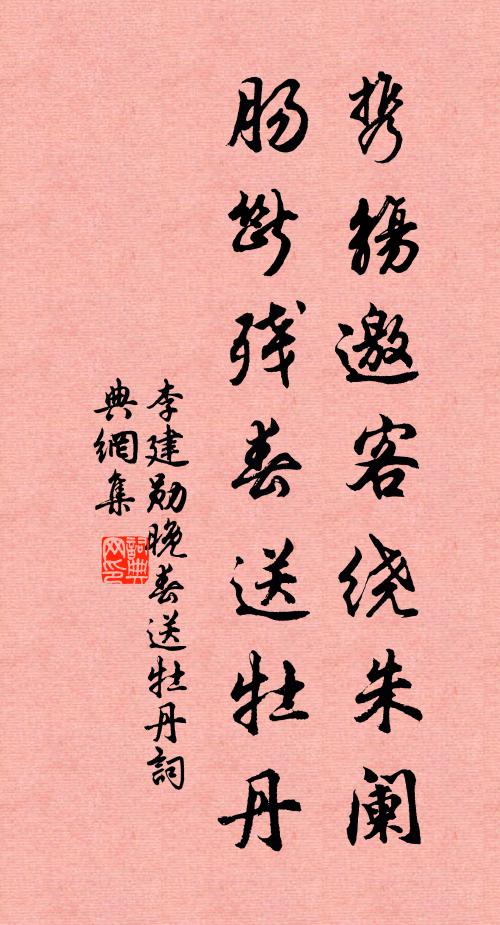 携觞邀客绕朱阑
肠断残春送牡丹
李建勋晚春送牡丹詞
典網集
詞典
网印